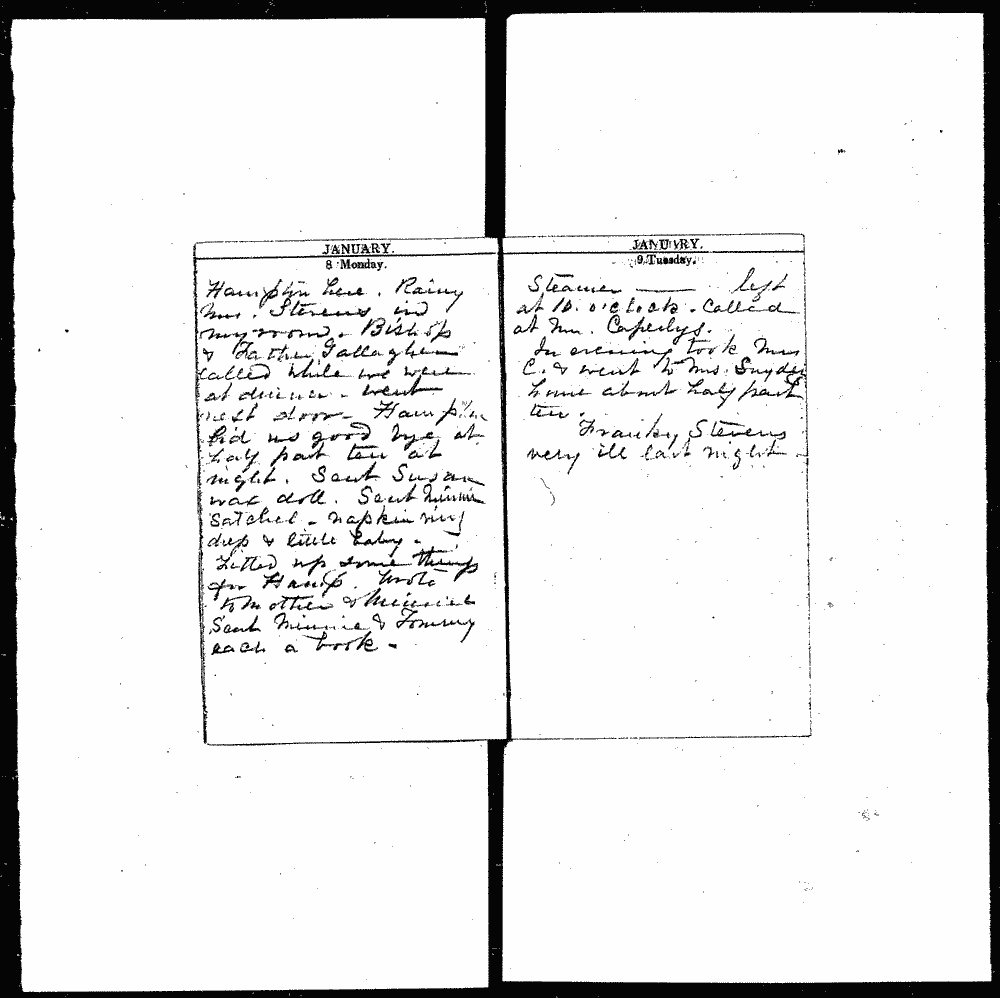 JANUARY.
8 Monday.
Hampton here. Rainy
Mrs. Stevens in
my room. Bishop
& Father Gallagher
called while we were
at dinner. went
next door - Hampton
bid us good bye at
half past ten at
night. Sent Susan
wax doll. Sent Minnie
Satchel - napkin ring
& little baby -
up some things
for Hamp. Wrote
to Mother & Minnie
Sent Minnie & Tommy
each a book -
JANUARY.
9 Tuesday.
Steamer —— left
at 10. o'clock. Called
at Mrs.
In evening took Mrs
C. & went to Mrs. Snyder
home about half past
ten.
Franky Stevens
very ill last night -